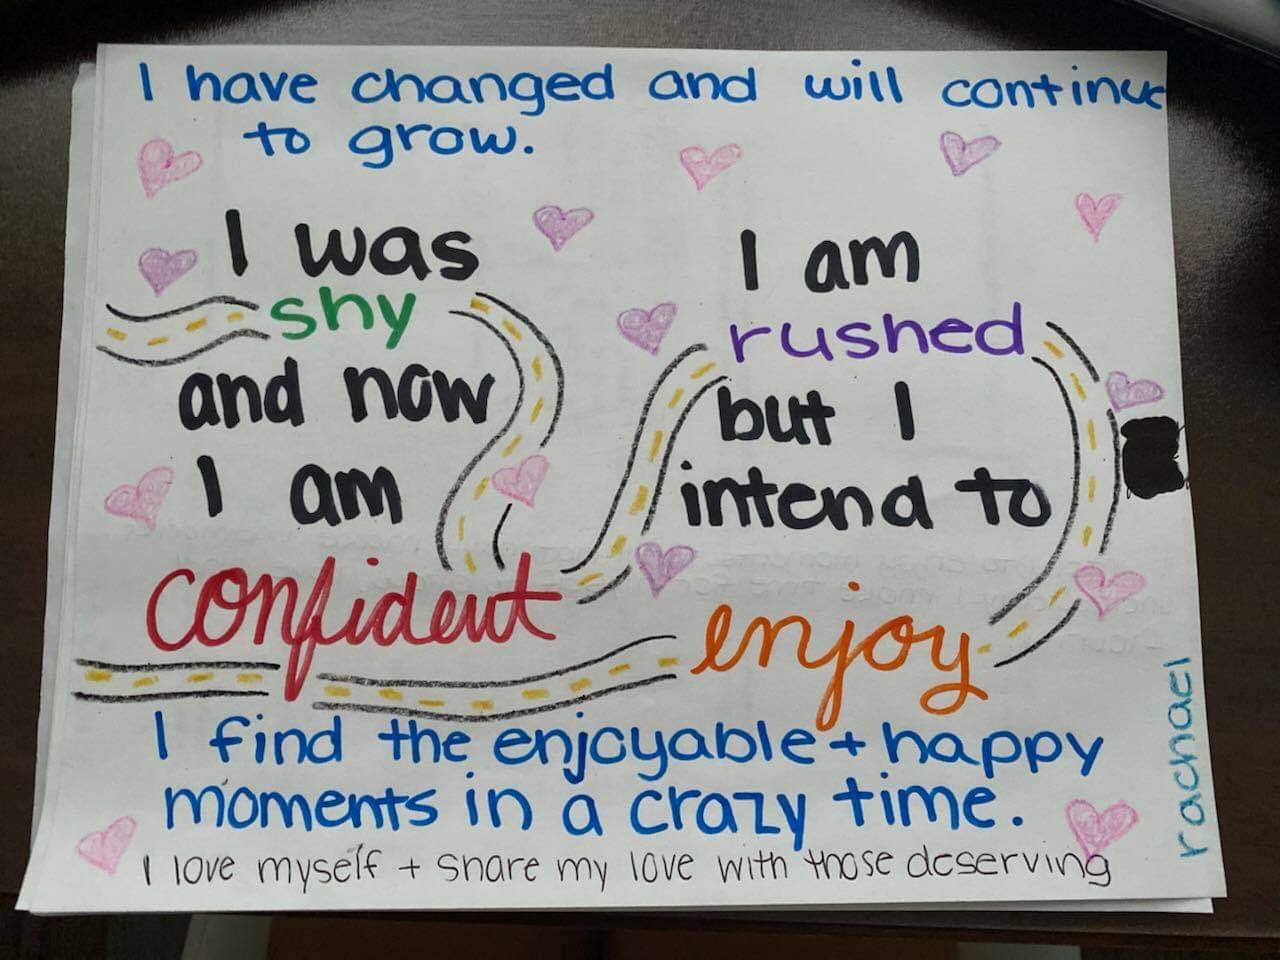 I have changed and will continue
to grow.
I was
shy
and now
I am
confident
I am
rushed
but I
intend to
enjoy
I find the enjoyable + happy
moments in a crazy time.
I love myself + share my love with those deserving
rachael